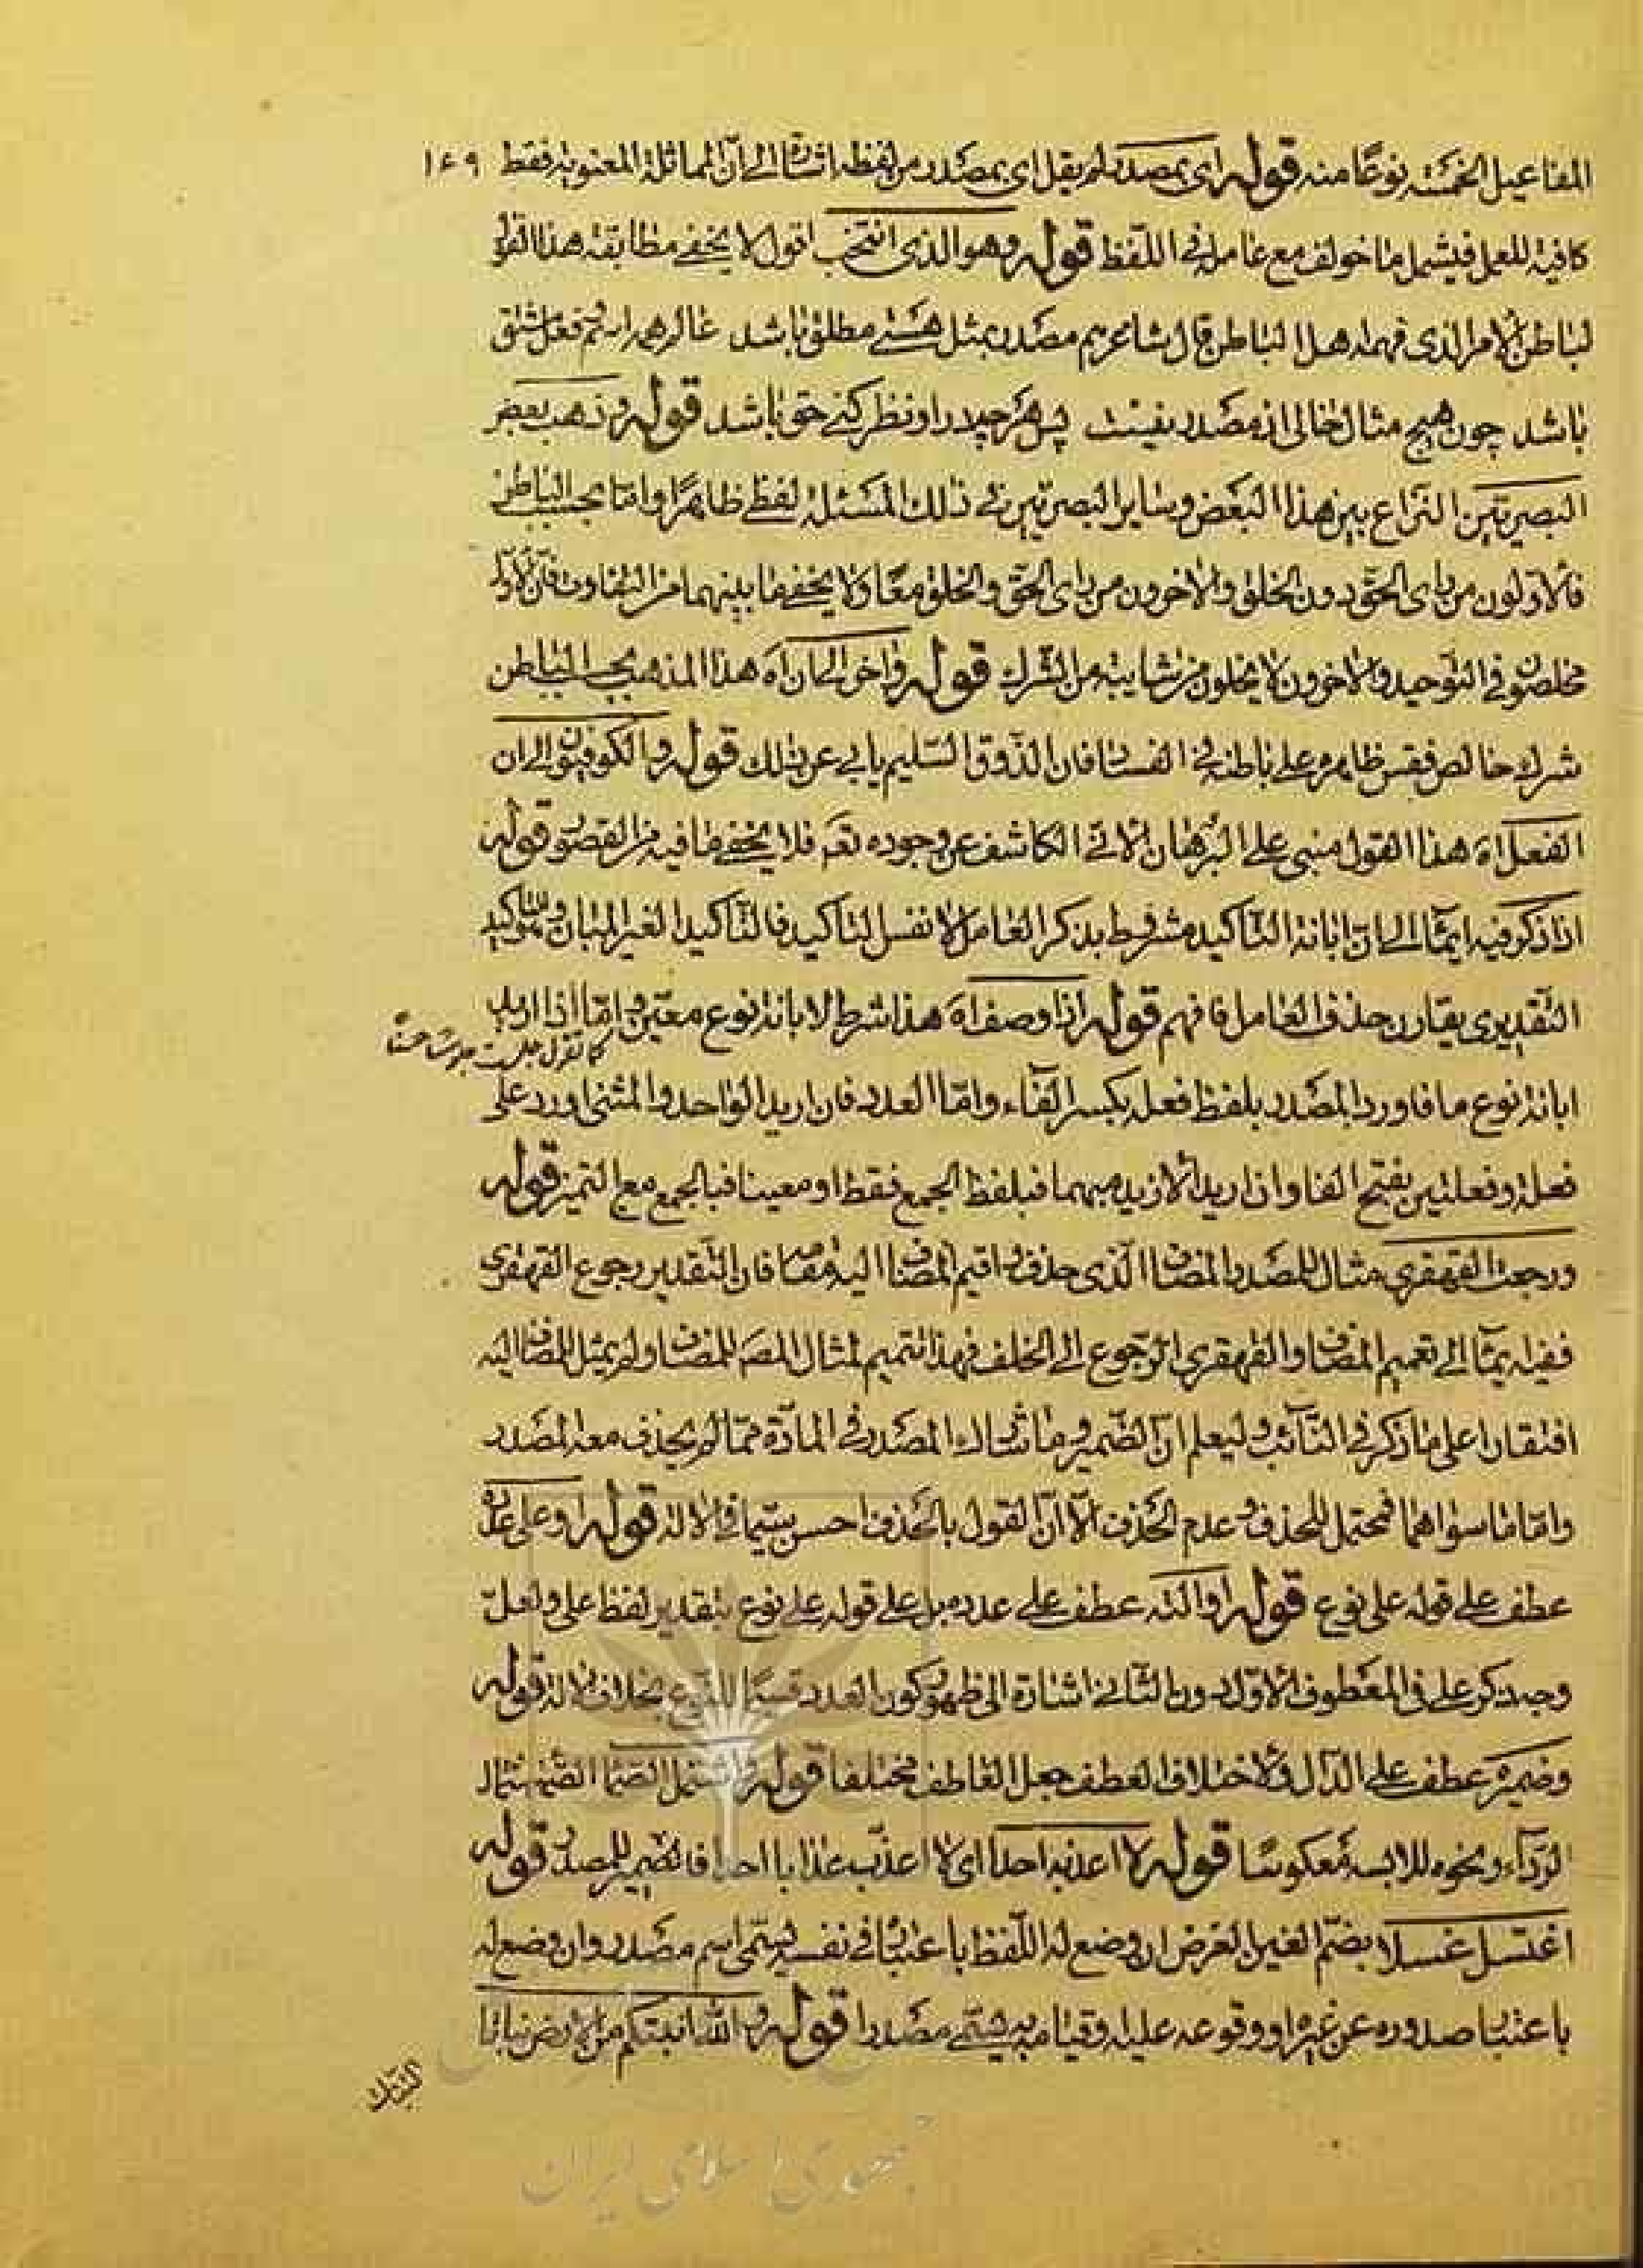 المفاعيل الخمسة نوعًا منه قوله اى بمصدر لم يقل اى بمصدر من لفظه اشارة الى انّ المماثلة المعنوية فقط ١٤٩
كافية للعمل فيشمل ما خولف مع عامله فى اللّفظ قوله وهو الذى انتخب اقول لا يخفى مطابقة هذا القول
لباطن الامر الذى فهمه اهل الباطن قال شاعرهم مصدر بمثل هستى مطلق باشد عالم همه اسم فعل مشتق
باشد چون هيچ مثال خالى از مصدر نيست پس هر چه در او نظر كنى حق باشد قوله وذهب بعض
البصريّين النّزاع بين هذا البعض وساير البصريّين فى ذلك المسئلة لفظى ظاهرًا وامّا بحسب الباطن
فالاوّلون من راى الحقّ دون الخلق والاخرون من راى الحقّ والخلق معًا ولا يخفى ما بينهما من التفاوت فانّ الاوّل
مخلصون فى التوحيد والاخرون لا يخلون من شايبة من الشّرك قوله واخر الى انه اه هذا المذهب بحسب الباطن
شرك خالص فقس ظاهره على باطنه فى الفساد فان الذّوق السّليم يابى عن ذلك قوله والكوفيون الى ان
الفعل اه هذا القول مبنى على البرهان الانّى الكاشف عن وجوده تعم فلا يخفى ما فيه من القصور قوله
اذا ذكر فيه ايماء الى ان ابانة التّاكيد مشروط بذكر العامل لا نفس التاكيد فالتّاكيد الغير المبان والتاكيد
التّقديرى يقارن حذف العامل فافهم قوله اذا وصف اه هذا شرط لابانة نوع معيّن وامّا اذا اريد
كما تقول جلست جلوسا حسنًا
ابانة نوع ما فاورد المصدر بلفظ فعلة بكسر الفاء وامّا العدد فان اريد الواحد والمثنى اورد على
فعلة وفعلتين بفتح الفا وان اريد الازيد مبهما فبلفظ الجمع فقط او معينا فبالجمع مع التميز قوله
ورجعت القهقرى مثال للمصدر المضاف الّذى حذف واقيم المضاف اليه مقامه فان التّقدير رجوع القهقرى
ففيه ايماء الى تعميم المضاف والقهقرى الرّجوع الى الخلف فهذا تتميم لمثال المصدر المضاف ولم يمثل للمضاف اليه
اتّكالا على ما ذكر فى النّائب وليعلم انّ الضّمير وما شارك المصدر فى المادّة ممّا لم يحذف معه المصدر
وامّا ما سواهما فمحتمل للحذف وعدم الحذف الّا انّ القول بالحذف احسن سيّما فى الالة قوله او على عدد
عطف على قوله على نوع قوله او الته عطف على عدد بل على قوله على نوع بتقدير لفظ على ولعلّ
وجه ذكر على فى المعطوف الاوّل دون الثّانى اشارة الى ظهور كون العدد قسيمًا للنوع بخلاف الالة قوله
وضميره عطف على الدّال ولاختلاف العطف جعل العاطف مختلفا قوله واشتمل الصّماء
الرّداء ونحوه للابسه معكوسًا قوله لا اعذبه احدا اى لا اعذّب عذابا احدا فالضّمير للمصدر قوله
اغتسل غسلا بضمّ الغين الغرض ان وضع له اللّفظ باعتباره فى نفسه يسمّى اسم مصدر وان وضع له
باعتبار صدوره عن غيره او وقوعه عليه وقيامه به يسمّى مصدرا قوله والله انبتكم من الارض نباتا
جمهورى اسلامى ايران